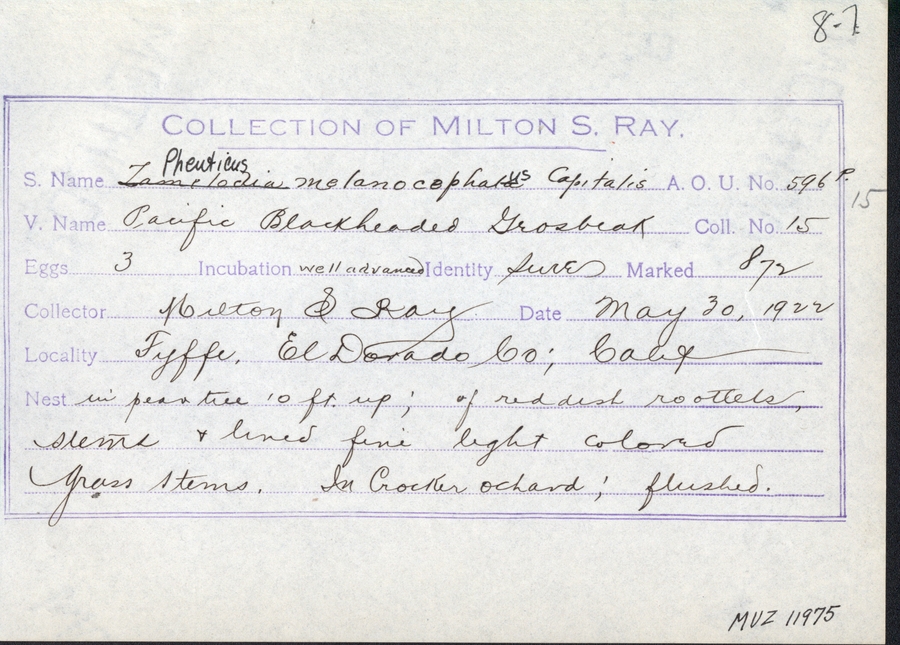 8-7
COLLECTION OF MILTON S. RAY.
Pheuticus
S. Name Zamelodia melanocephalus Capitalis A. O. U. No. 596 P.
15
V. Name Pacific Blackheaded Grosbeak Coll. No. 15
Eggs 3 Incubation well advanced Identity sure Marked 8/72
Collector Milton S Ray Date May 30, 1922
Locality Fyffe, El Dorado Co; Calif
Nest in pear tree 10 ft. up; of reddish roottels,
stems & lined fine light colored
grass stems. In Crocker ochard; flushed.
MVZ 11975